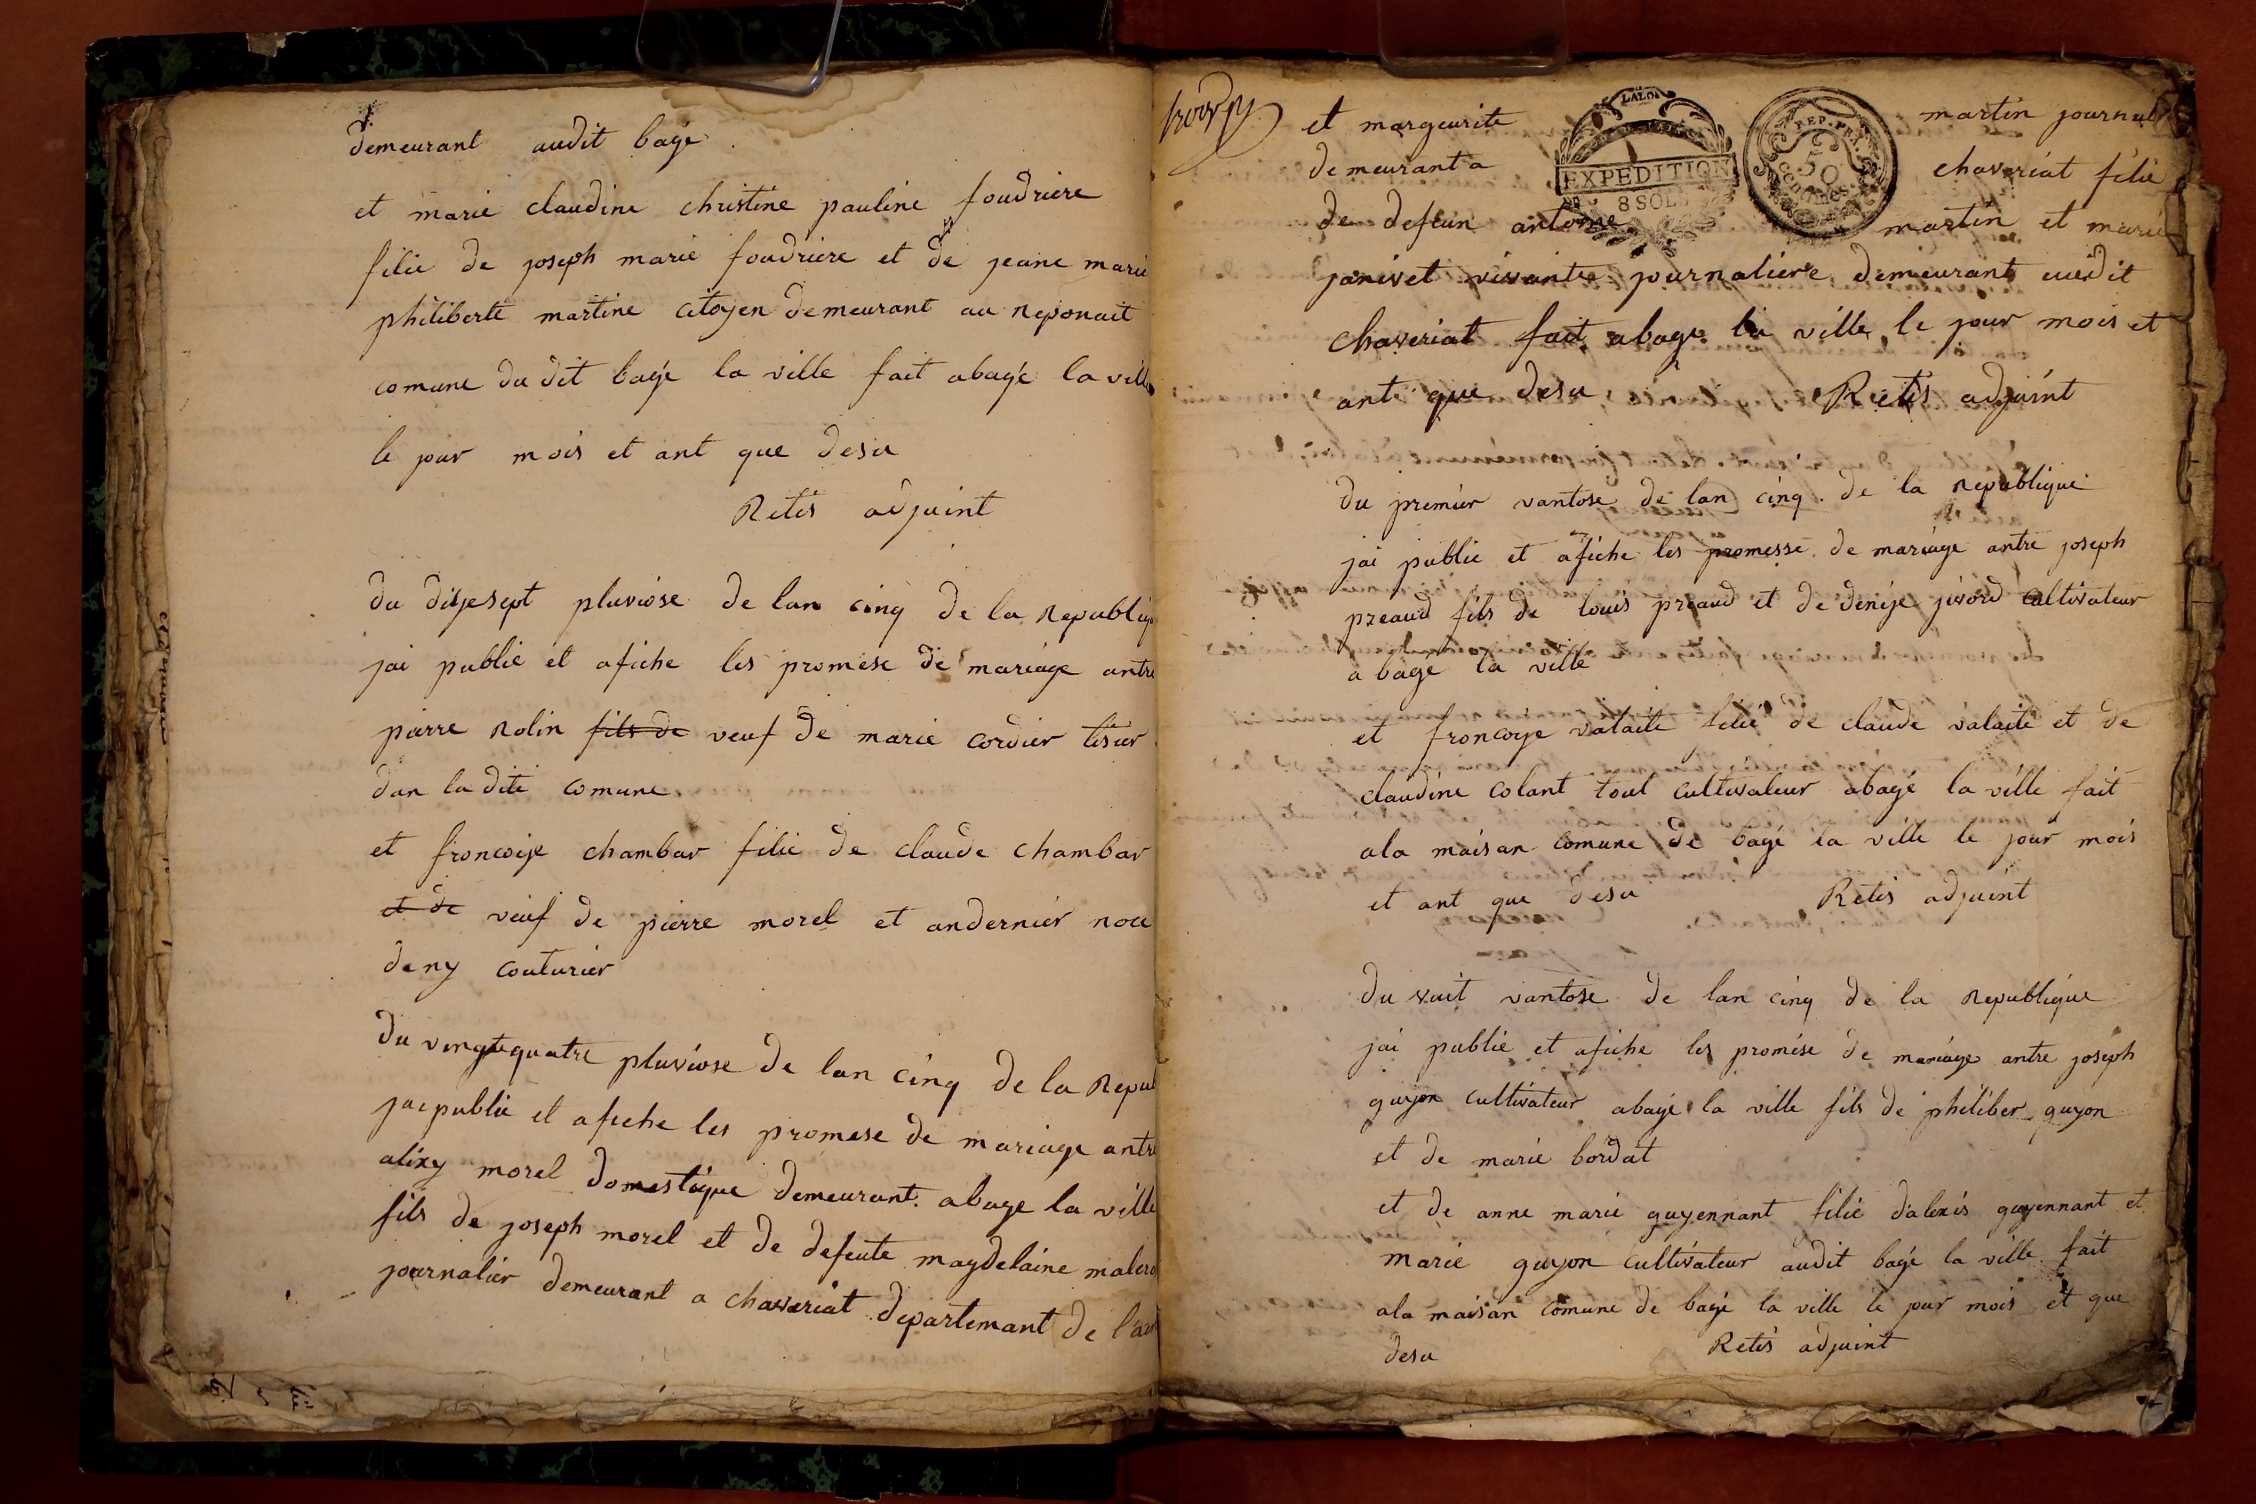 demeurant audit bagé
et marie claudine christine pauline foudriere
filie de joseph marie foudriere et de jeane marie
philiberte martine citoyen demeurant au neponait
comune du dit bagé la ville fait abagé la ville
le jour mois et ant que desu
Retis adjuint
du disjesept pluviose de lan cinq de la Republiq
jai publie et afiche les promese de mariage antre
pierre Rolin fils de veuf de marie cordier tisier
dan la dite comune
et froncoise chambar filie de claude chambar
et de veuf de pierre morel et andernier noce
deny couturier
du vingtequatre pluviose de lan cinq de la Repu
jai publie et afiche les promese de mariage antre
alixy morel domestique demeurant abage la ville
fils de joseph morel et de defeute magdelaine
journalier demeurant a chaveriat departemant de l'ain
et margeurite martin journal
demeurant a chaveriat filie
de defeun antoine martin et marie
janivet vivante journaliere demeurant audit
chaveriat fait abage la ville le jour mois et
ant que desu Retis adjuint
LALOI
EXPEDITION
8 SOLS
REP. FRA.
50
CENTIMES
du premier vantose de lan cinq de la Republique
jai publie et afiche les promesse de mariage antre joseph
preaud fils de louis preaud et de denise jivord cultivateur
a bage la ville
et froncoise valaite filie de claude valaite et de
claudine colant tout cultivateur abagé la ville fait
ala maisan comune de bagé la ville le jour mois
et ant que desu Retis adjuint
du vuit vantose de lan cinq de la Republique
jai publie et afiche les promese de mariage antre joseph
guyon cultivateur abagé la ville fils de philiber guyon
et de marie bordat
et de anne marie guyennant filie d'alexis guyennant et
marie guyon cultivateur audit bagé la ville fait
ala maisan comune de bagé la ville le jour mois et que
desu Retis adjuint